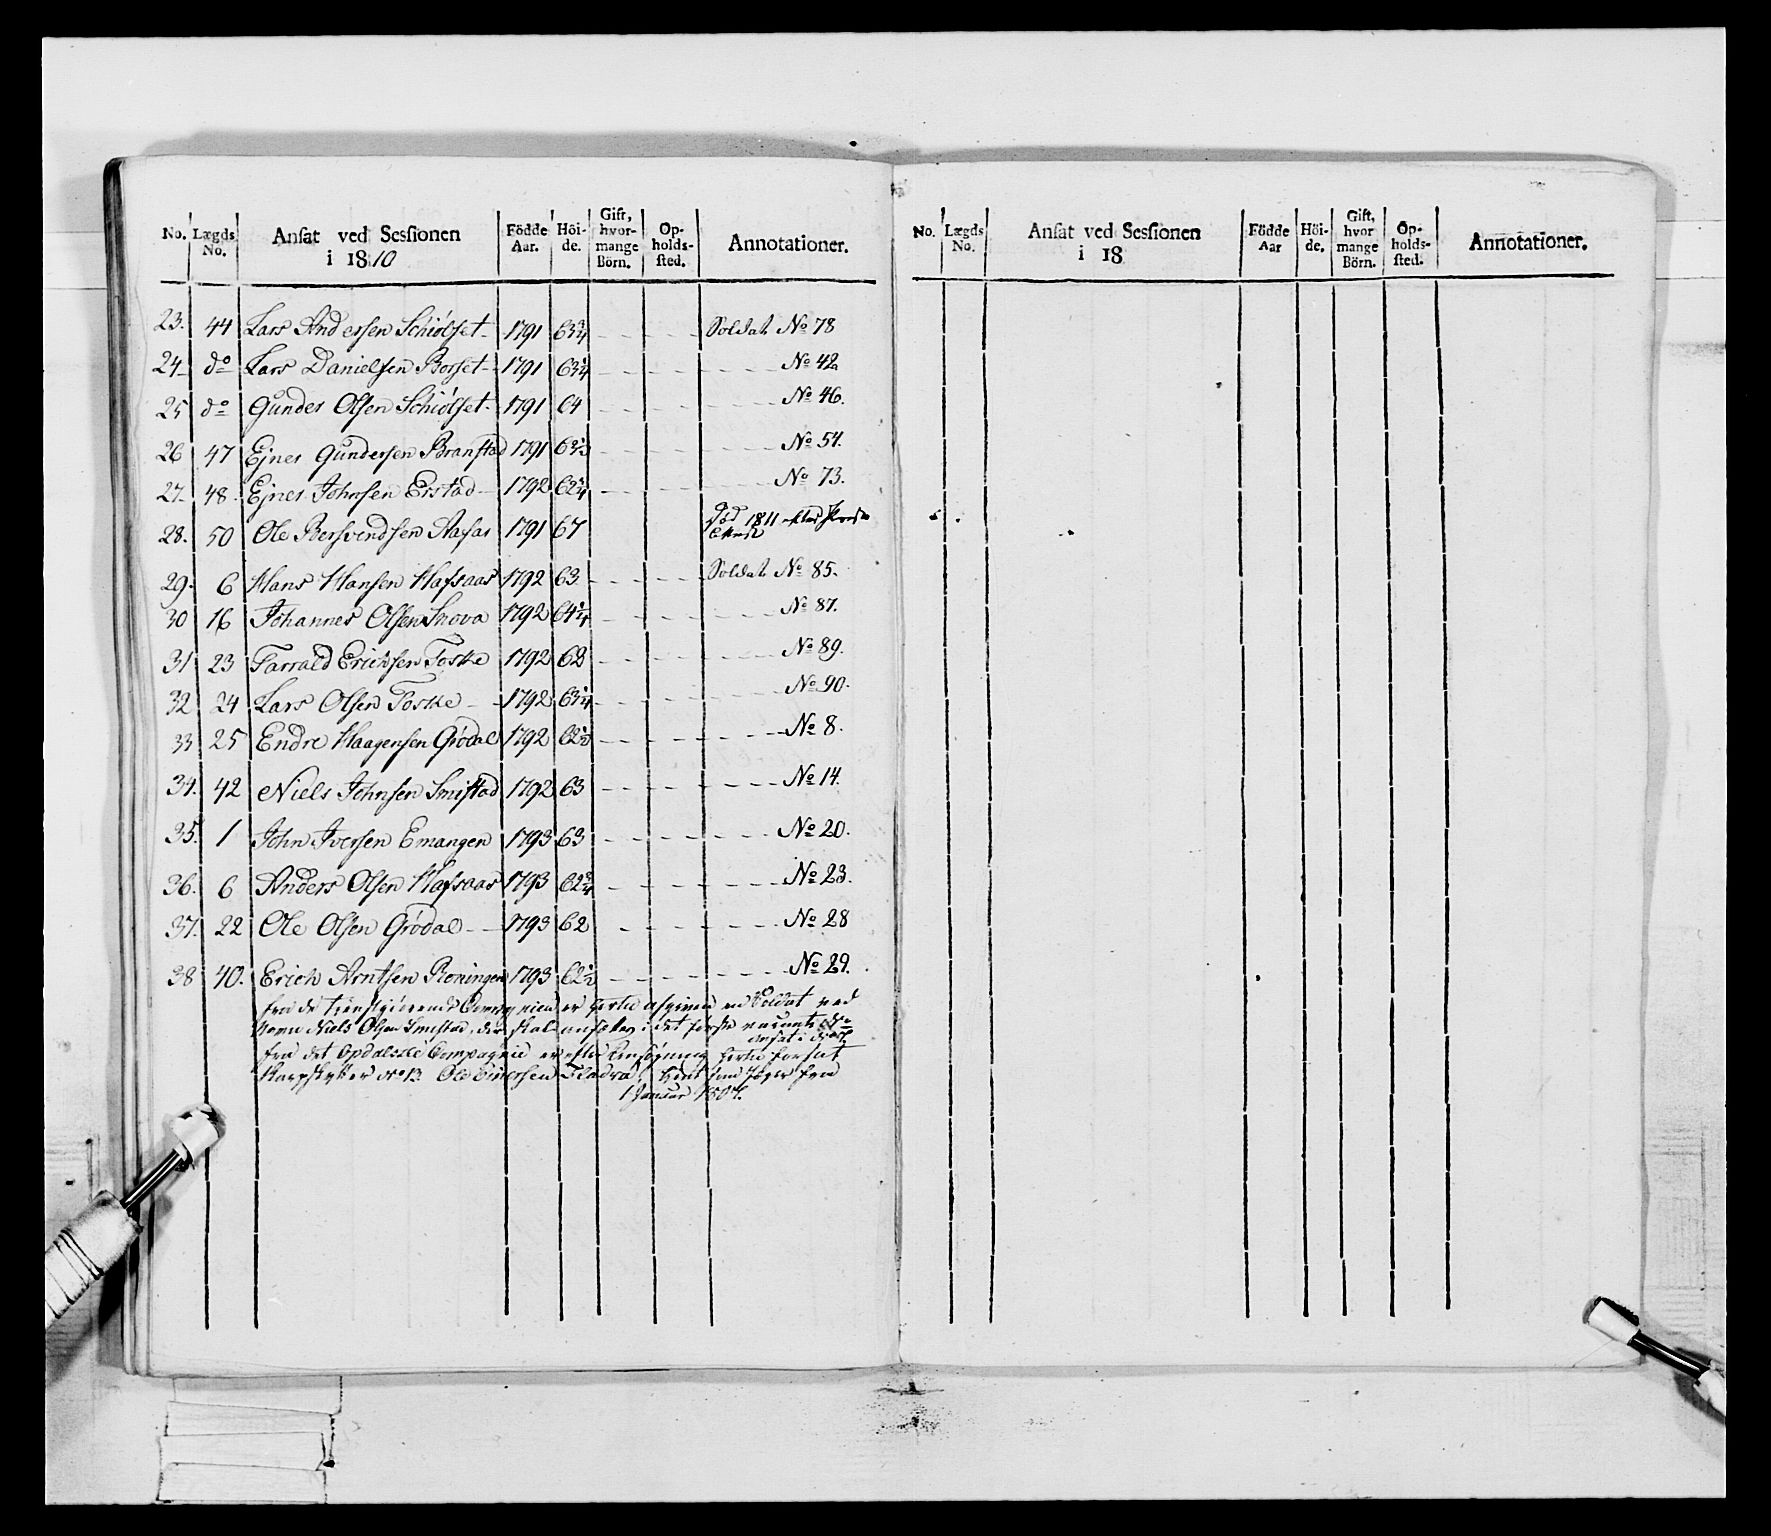 No. Lægds No. Ansat ved Sessionen i 1810 Födde Aar. Höi-de. Gift, hvor-mange Börn. Op-holds-sted. Annotationer.
23. 44 Lars Andersen Schiölset 1791 63¾ Soldat No 78
24 do Lars Danielsen Borset 1791 63¼ No 42
25 do Gunder Olsen Schiölset 1791 64 No 46.
26 47 Ejner Gundersen Branstad 1791 No 54.
27 48 Ejner Johnsen Erstad 1792 62¼ No 73.
28. 50 Ole Bersvendsen Aafas 1791 67 Död 1811
29. 6 Hans Hansen Hafsaas 1792 63 Soldat No 85.
30 16 Johannes Olsen Snova 1792 64¼ No 87.
31 23 Farrald Erichsen Foske 1792 62 No 89.
32 24 Lars Olsen Foske 1792 63¼ No 90.
33 25 Endre Haagensen Grödal 1792 62½ No 8.
34. 42 Niels Johnsen Smistad 1792 63 No 14.
35. 1 John Iversen Emangen 1793 63 No 20.
36. 6 Anders Olsen Hafsaas 1793 62¾ No 23.
37. 22 Ole Olsen Grödal 1793 62 No 28
38 40. Erich Arntsen Röningen 1793 62½ No 29.
fra de Compagnier er hertil afgiven en Soldat ved
Navn Niels Olsen Smistad, der skal ansættes i det første vacante No
ansat i
fra det Opdalske Compagnie er efter Ansøgning hertil forsat
Skarpskytter No 13 Ole Einersen Fladraa, tient som Jæger fra
1 Januar 1807.
No. Lægds No. Ansat ved Sessionen i 18 Födde Aar Höi-de. Gift, hvor mange Börn. Op-holds-sted. Annotationer.